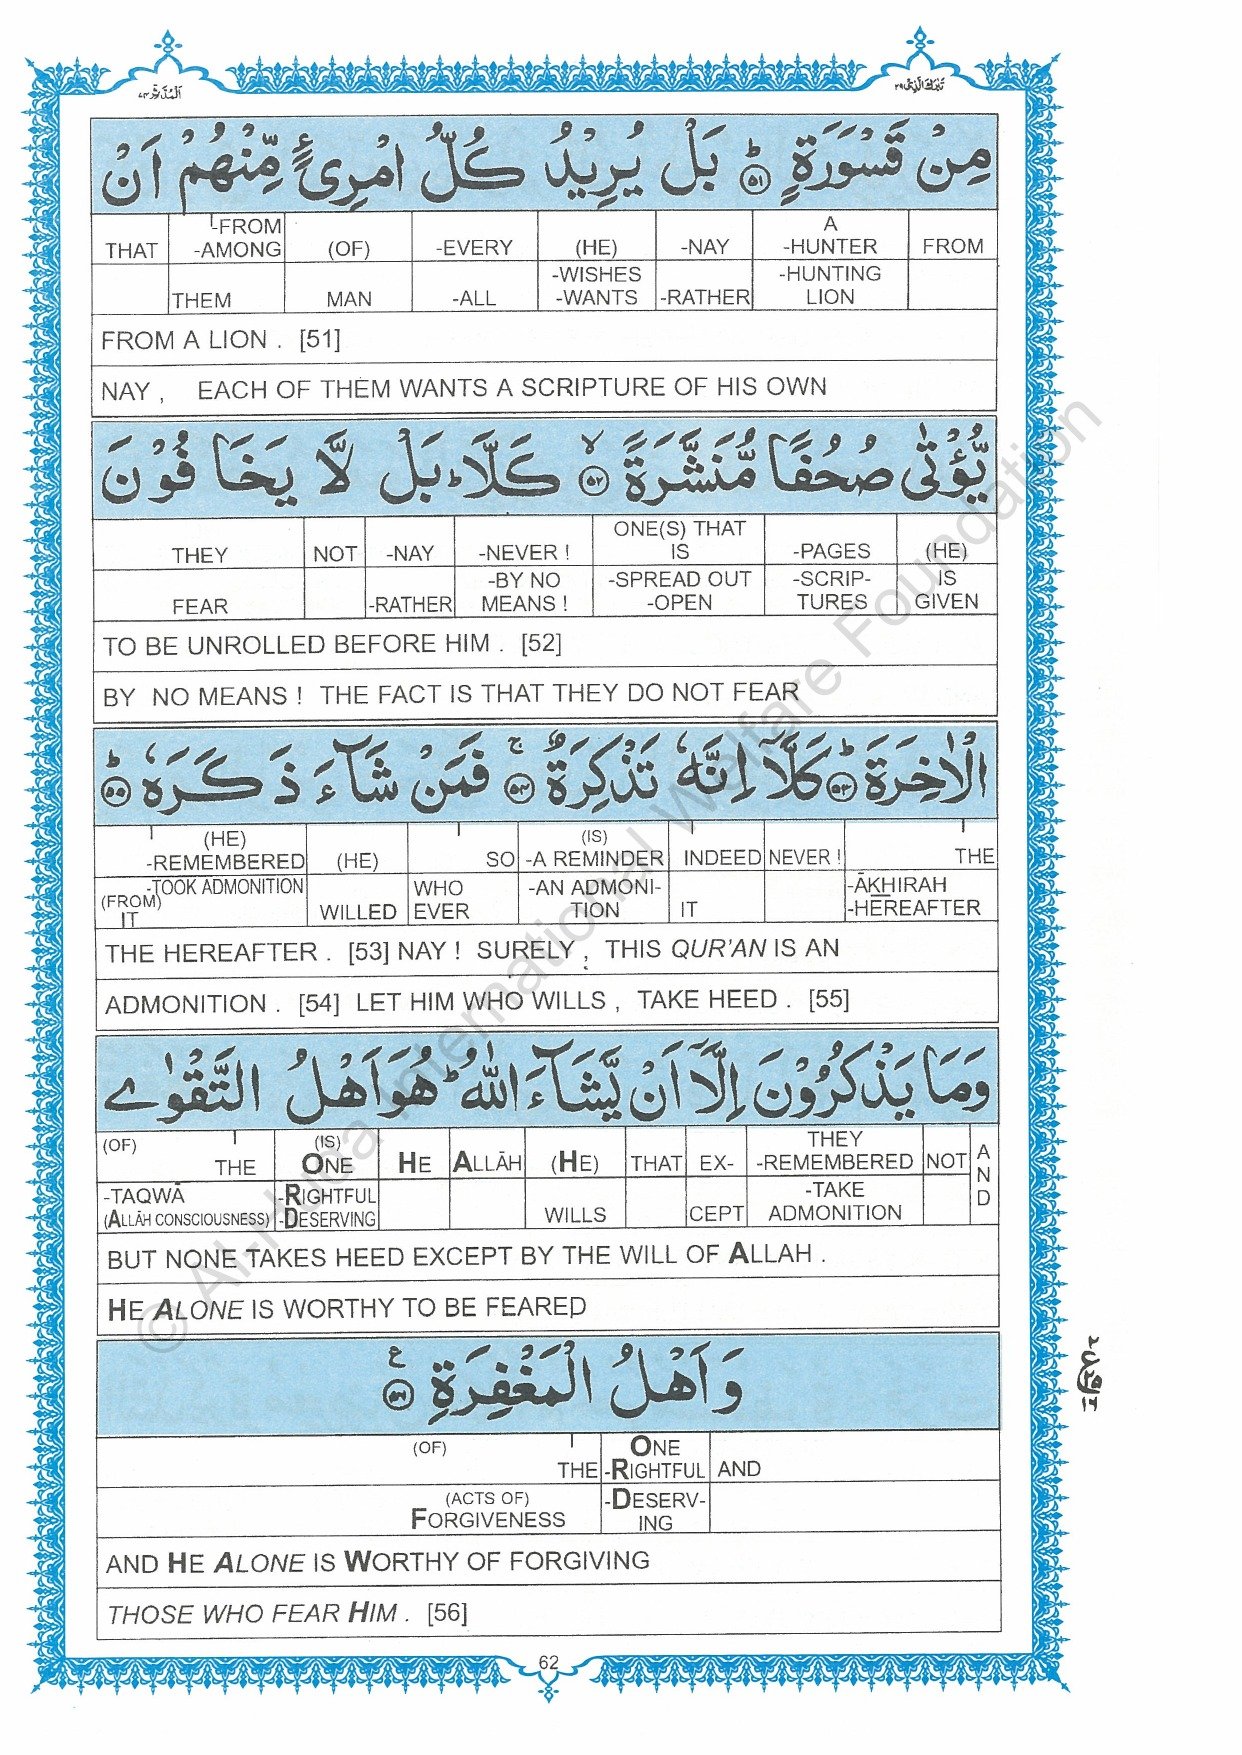 تَبٰرَكَ الَّذِىْ ٢٩
اَلْمُدَّثِّر ٧٤
مِنْ قَسْوَرَةٍ ؕ ٥١ بَلْ يُرِيْدُ كُلُّ امْرِئٍ مِّنْهُمْ اَنْ
THAT -FROM -AMONG (OF) -EVERY (HE) -NAY A -HUNTER FROM
THEM MAN -ALL -WISHES -WANTS -RATHER -HUNTING LION
FROM A LION . [51]
NAY , EACH OF THEM WANTS A SCRIPTURE OF HIS OWN
يُّؤْتٰى صُحُفًا مُّنَشَّرَةً ۙ ٥٢ كَلَّا ؕ بَلْ لَّا يَخَافُوْنَ
THEY NOT -NAY -NEVER ! ONE(S) THAT IS -PAGES (HE)
FEAR -RATHER -BY NO MEANS ! -SPREAD OUT -OPEN -SCRIP- TURES IS GIVEN
TO BE UNROLLED BEFORE HIM . [52]
BY NO MEANS ! THE FACT IS THAT THEY DO NOT FEAR
الْاٰخِرَةَ ؕ ٥٣ كَلَّاۤ اِنَّهٗ تَذْكِرَةٌ ۚ ٥٤ فَمَنْ شَآءَ ذَكَرَهٗ ؕ ٥٥
(HE) -REMEMBERED (HE) SO (IS) -A REMINDER INDEED NEVER ! THE
-TOOK ADMONITION (FROM) IT WILLED WHO EVER -AN ADMONI- TION IT -ĀKHIRAH -HEREAFTER
THE HEREAFTER . [53] NAY ! SURELY , THIS QUR'AN IS AN
ADMONITION . [54] LET HIM WHO WILLS , TAKE HEED . [55]
وَمَا يَذْكُرُوْنَ اِلَّاۤ اَنْ يَّشَآءَ اللّٰهُ ؕ هُوَ اَهْلُ التَّقْوٰى
(OF) THE (IS) ONE HE ALLĀH (HE) THAT EX- THEY -REMEMBERED NOT AND
-TAQWĀ (ALLĀH CONSCIOUSNESS) -RIGHTFUL -DESERVING WILLS CEPT -TAKE ADMONITION
BUT NONE TAKES HEED EXCEPT BY THE WILL OF ALLAH .
HE ALONE IS WORTHY TO BE FEARED
وَاَهْلُ الْمَغْفِرَةِ ع ٥٦
(OF) THE ONE -RIGHTFUL AND
(ACTS OF) FORGIVENESS -DESERV- ING
AND HE ALONE IS WORTHY OF FORGIVING
THOSE WHO FEAR HIM . [56]
62
© Al-Huda International Welfare Foundation